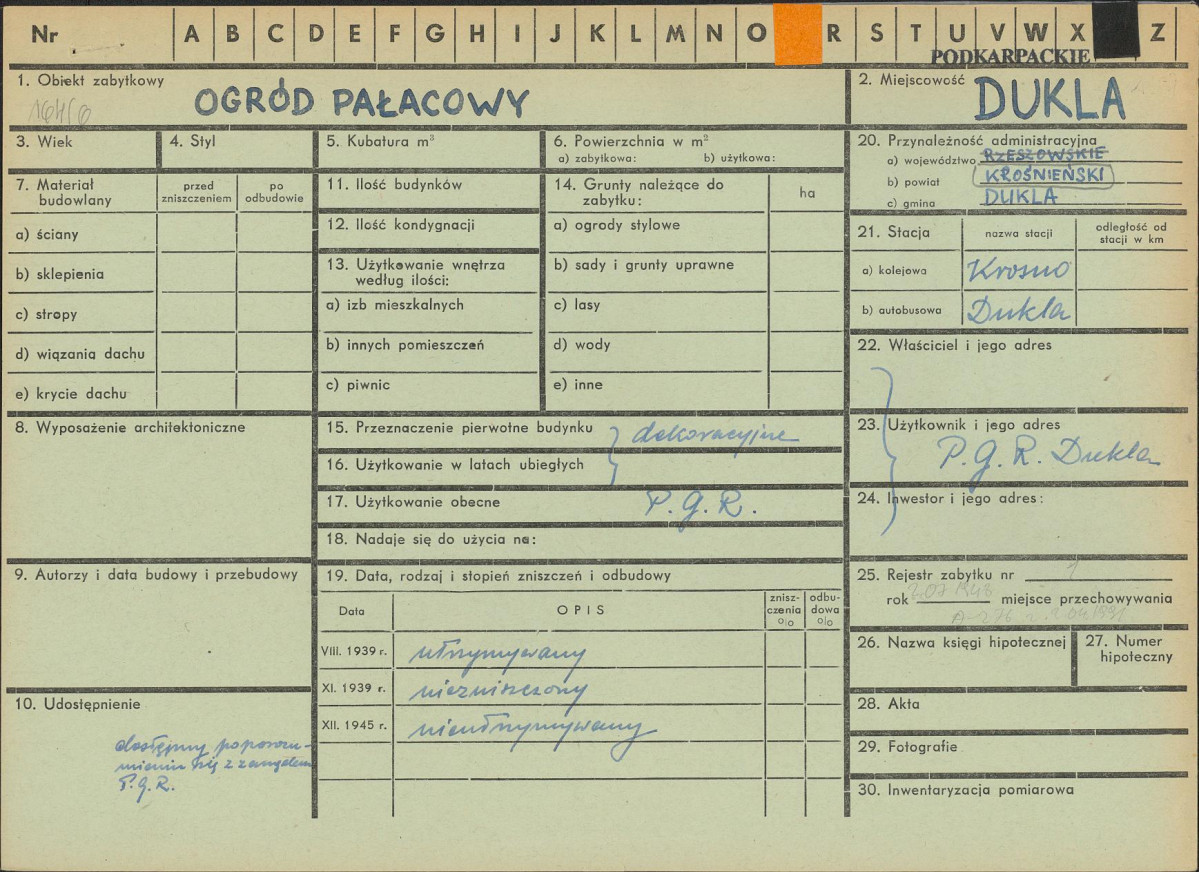 Nr A B C D E F G H I J K L M N O R S T U V W X Z
PODKARPACKIE
1. Obiekt zabytkowy
OGRÓD PAŁACOWY
2. Miejscowość
DUKLA
3. Wiek
4. Styl
5. Kubatura m³
6. Powierzchnia w m²
a) zabytkowa: b) użytkowa:
7. Materiał budowlany
przed zniszczeniem
po odbudowie
a) ściany
b) sklepienia
c) stropy
d) wiązania dachu
e) krycie dachu
8. Wyposażenie architektoniczne
9. Autorzy i data budowy i przebudowy
10. Udostępnienie
dostępny po porozu-
mieniu się z zarządem
P.G.R.
11. Ilość budynków
12. Ilość kondygnacji
13. Użytkowanie wnętrza
według ilości:
a) izb mieszkalnych
b) innych pomieszczeń
c) piwnic
14. Grunty należące do
zabytku:
ha
a) ogrody stylowe
b) sady i grunty uprawne
c) lasy
d) wody
e) inne
15. Przeznaczenie pierwotne budynku
dekoracyjne
16. Użytkowanie w latach ubiegłych
17. Użytkowanie obecne P.G.R.
18. Nadaje się do użycia na:
19. Data, rodzaj i stopień zniszczeń i odbudowy
Data
OPIS
znisz-
czenia
%
odbu-
dowa
%
VIII. 1939 r. utrzymywany
XI. 1939 r. niezniszczony
XII. 1945 r. nieutrzymywany
20. Przynależność administracyjna
a) województwo RZESZOWSKIE
b) powiat KROŚNIEŃSKI
c) gmina DUKLA
21. Stacja
nazwa stacji
odległość od
stacji w km
a) kolejowa Krosno
b) autobusowa Dukla
22. Właściciel i jego adres
23. Użytkownik i jego adres
P.G.R. Dukla
24. Inwestor i jego adres:
25. Rejestr zabytku nr 1
rok 1948 miejsce przechowywania
26. Nazwa księgi hipotecznej
27. Numer
hipoteczny
28. Akta
29. Fotografie
30. Inwentaryzacja pomiarowa